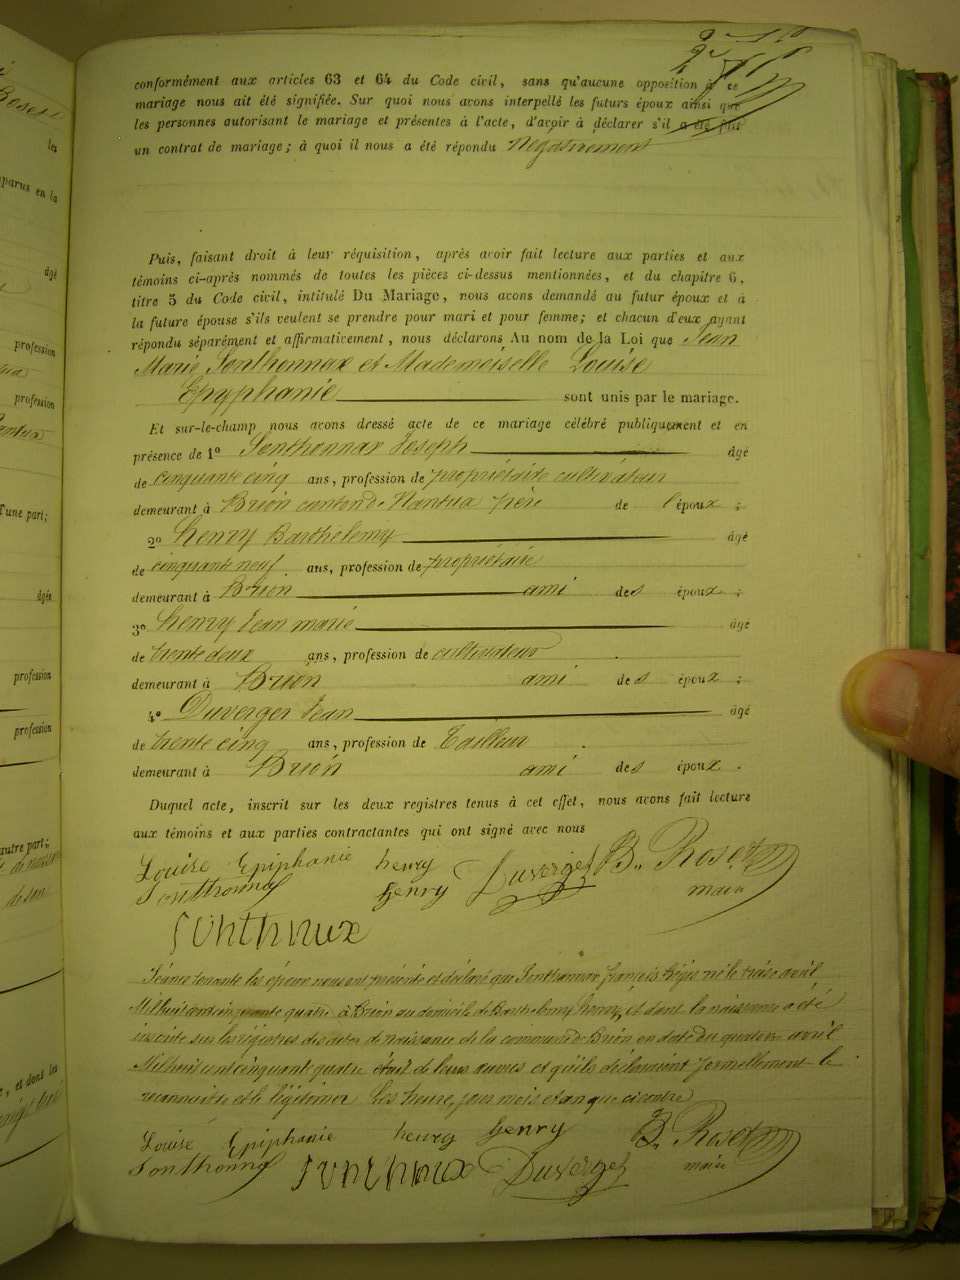 conformément aux articles 63 et 64 du Code civil, sans qu'aucune opposition à ce
mariage nous ait été signifiée. Sur quoi nous avons interpellé les futurs époux ainsi que
les personnes autorisant le mariage et présentes à l'acte, d'avoir à déclarer s'il a été fait
un contrat de mariage; à quoi il nous a été répondu Négativement
Puis, faisant droit à leur réquisition, après avoir fait lecture aux parties et aux
témoins ci-après nommés de toutes les pièces ci-dessus mentionnées, et du chapitre 6,
titre 5 du Code civil, intitulé Du Mariage, nous avons demandé au futur époux et à
la future épouse s'ils veulent se prendre pour mari et pour femme; et chacun d'eux ayant
répondu séparément et affirmativement, nous déclarons Au nom de la Loi que Jean
Marie Sonthonnax et Mademoiselle Louise
Epyphanie sont unis par le mariage.
Et sur-le-champ nous avons dressé acte de ce mariage célébré publiquement et en
présence de 1º Sonthonnax Joseph âgé
de cinquante cinq ans, profession de propriétaire cultivateur
demeurant à Brion canton de Nantua père de l'époux ;
2º henry Barthelemy âgé
de cinquante neuf ans, profession de propriétaire
demeurant à Brion ami des époux ;
3º henry Jean marie âgé
de trente deux ans, profession de cultivateur
demeurant à Brion ami des époux ;
4º Duverger Jean âgé
de trente cinq ans, profession de Tailleur
demeurant à Brion ami des époux .
Duquel acte, inscrit sur les deux registres tenus à cet effet, nous avons fait lecture
aux témoins et aux parties contractantes qui ont signé avec nous
Louise Epiphanie henry Duverger B. Roset
Sonthonnax henry maire
Sonthonnax
Séance tenante les époux nous ont présenté et déclaré que Sonthonnax françois Régis né le treize avril
Mil huit cent cinquante quatre à Brion au domicile de Barthelemy henry, et dont la naissance a été
inscrite sur les régistres des actes de naissance de la commune de Brion en date du quatorze avril
Mil huit cent cinquante quatre était de leurs œuvres et qu'ils déclaraient formellement le
reconnaitre et le légitimer les heure, jour mois et an que ci contre
Louise Epiphanie henry henry B. Roset
Sonthonnax Sonthonnax Duverger maire
profession
profession
d'une part;
profession
profession
autre part;